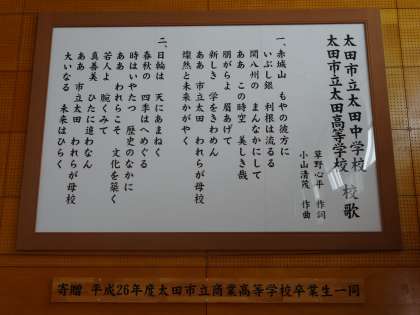 太田市立太田中学校
太田市立太田高等学校 校歌
草野心平 作詞
小山清茂 作曲
一、赤城山 もやの彼方に
いぶし銀 利根は流るる
関八州の まんなかにして
ああ この時空 美しき哉
朋がらよ 眉あげて
新しき 学をきわめん
ああ 市立太田 われらが母校
燦然と未来かがやく
二、日輪は 天にあまねく
春秋の 四季はへめぐる
時はいやたつ 歴史のなかに
ああ われらこそ 文化を築く
若人よ 腕くみて
真善美 ひたに追わなん
ああ 市立太田 われらが母校
大いなる 未来はひらく
寄贈 平成26年度太田市立商業高等学校卒業生一同